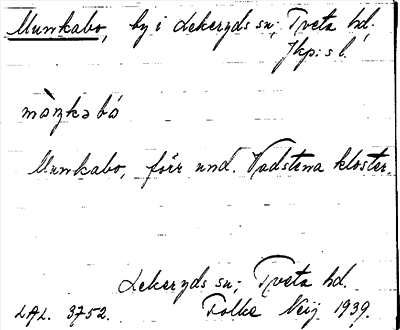 Munkabo, by i Lekeryds sn; Tveta hd.
Jkp:s l.
màŋkəbó
Munkabo, förr und. Vadstena kloster.
Lekeryds sn; Tveta hd.
LAL. 3752. Folke Neij 1939.